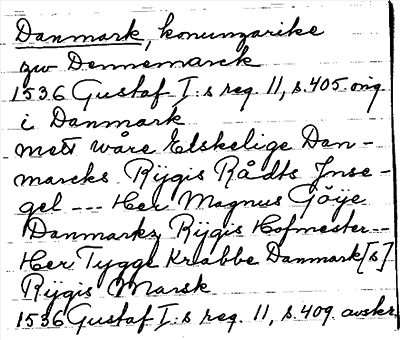 Danmark, konungarike
zw Dennemarck
1536 Gustaf I:s reg. 11, s. 405. orig.
i Danmark
mett wåre Elskelige Dan-
marcks Rijgis Rådts Jnse-
gel --- Her Magnus Göye
Danmarks Rijgis Hofmester--
Her Tygge Krabbe Danmark[s]
Rijgis Marsk
1536 Gustaf I:s reg. 11, s. 409. avskr.